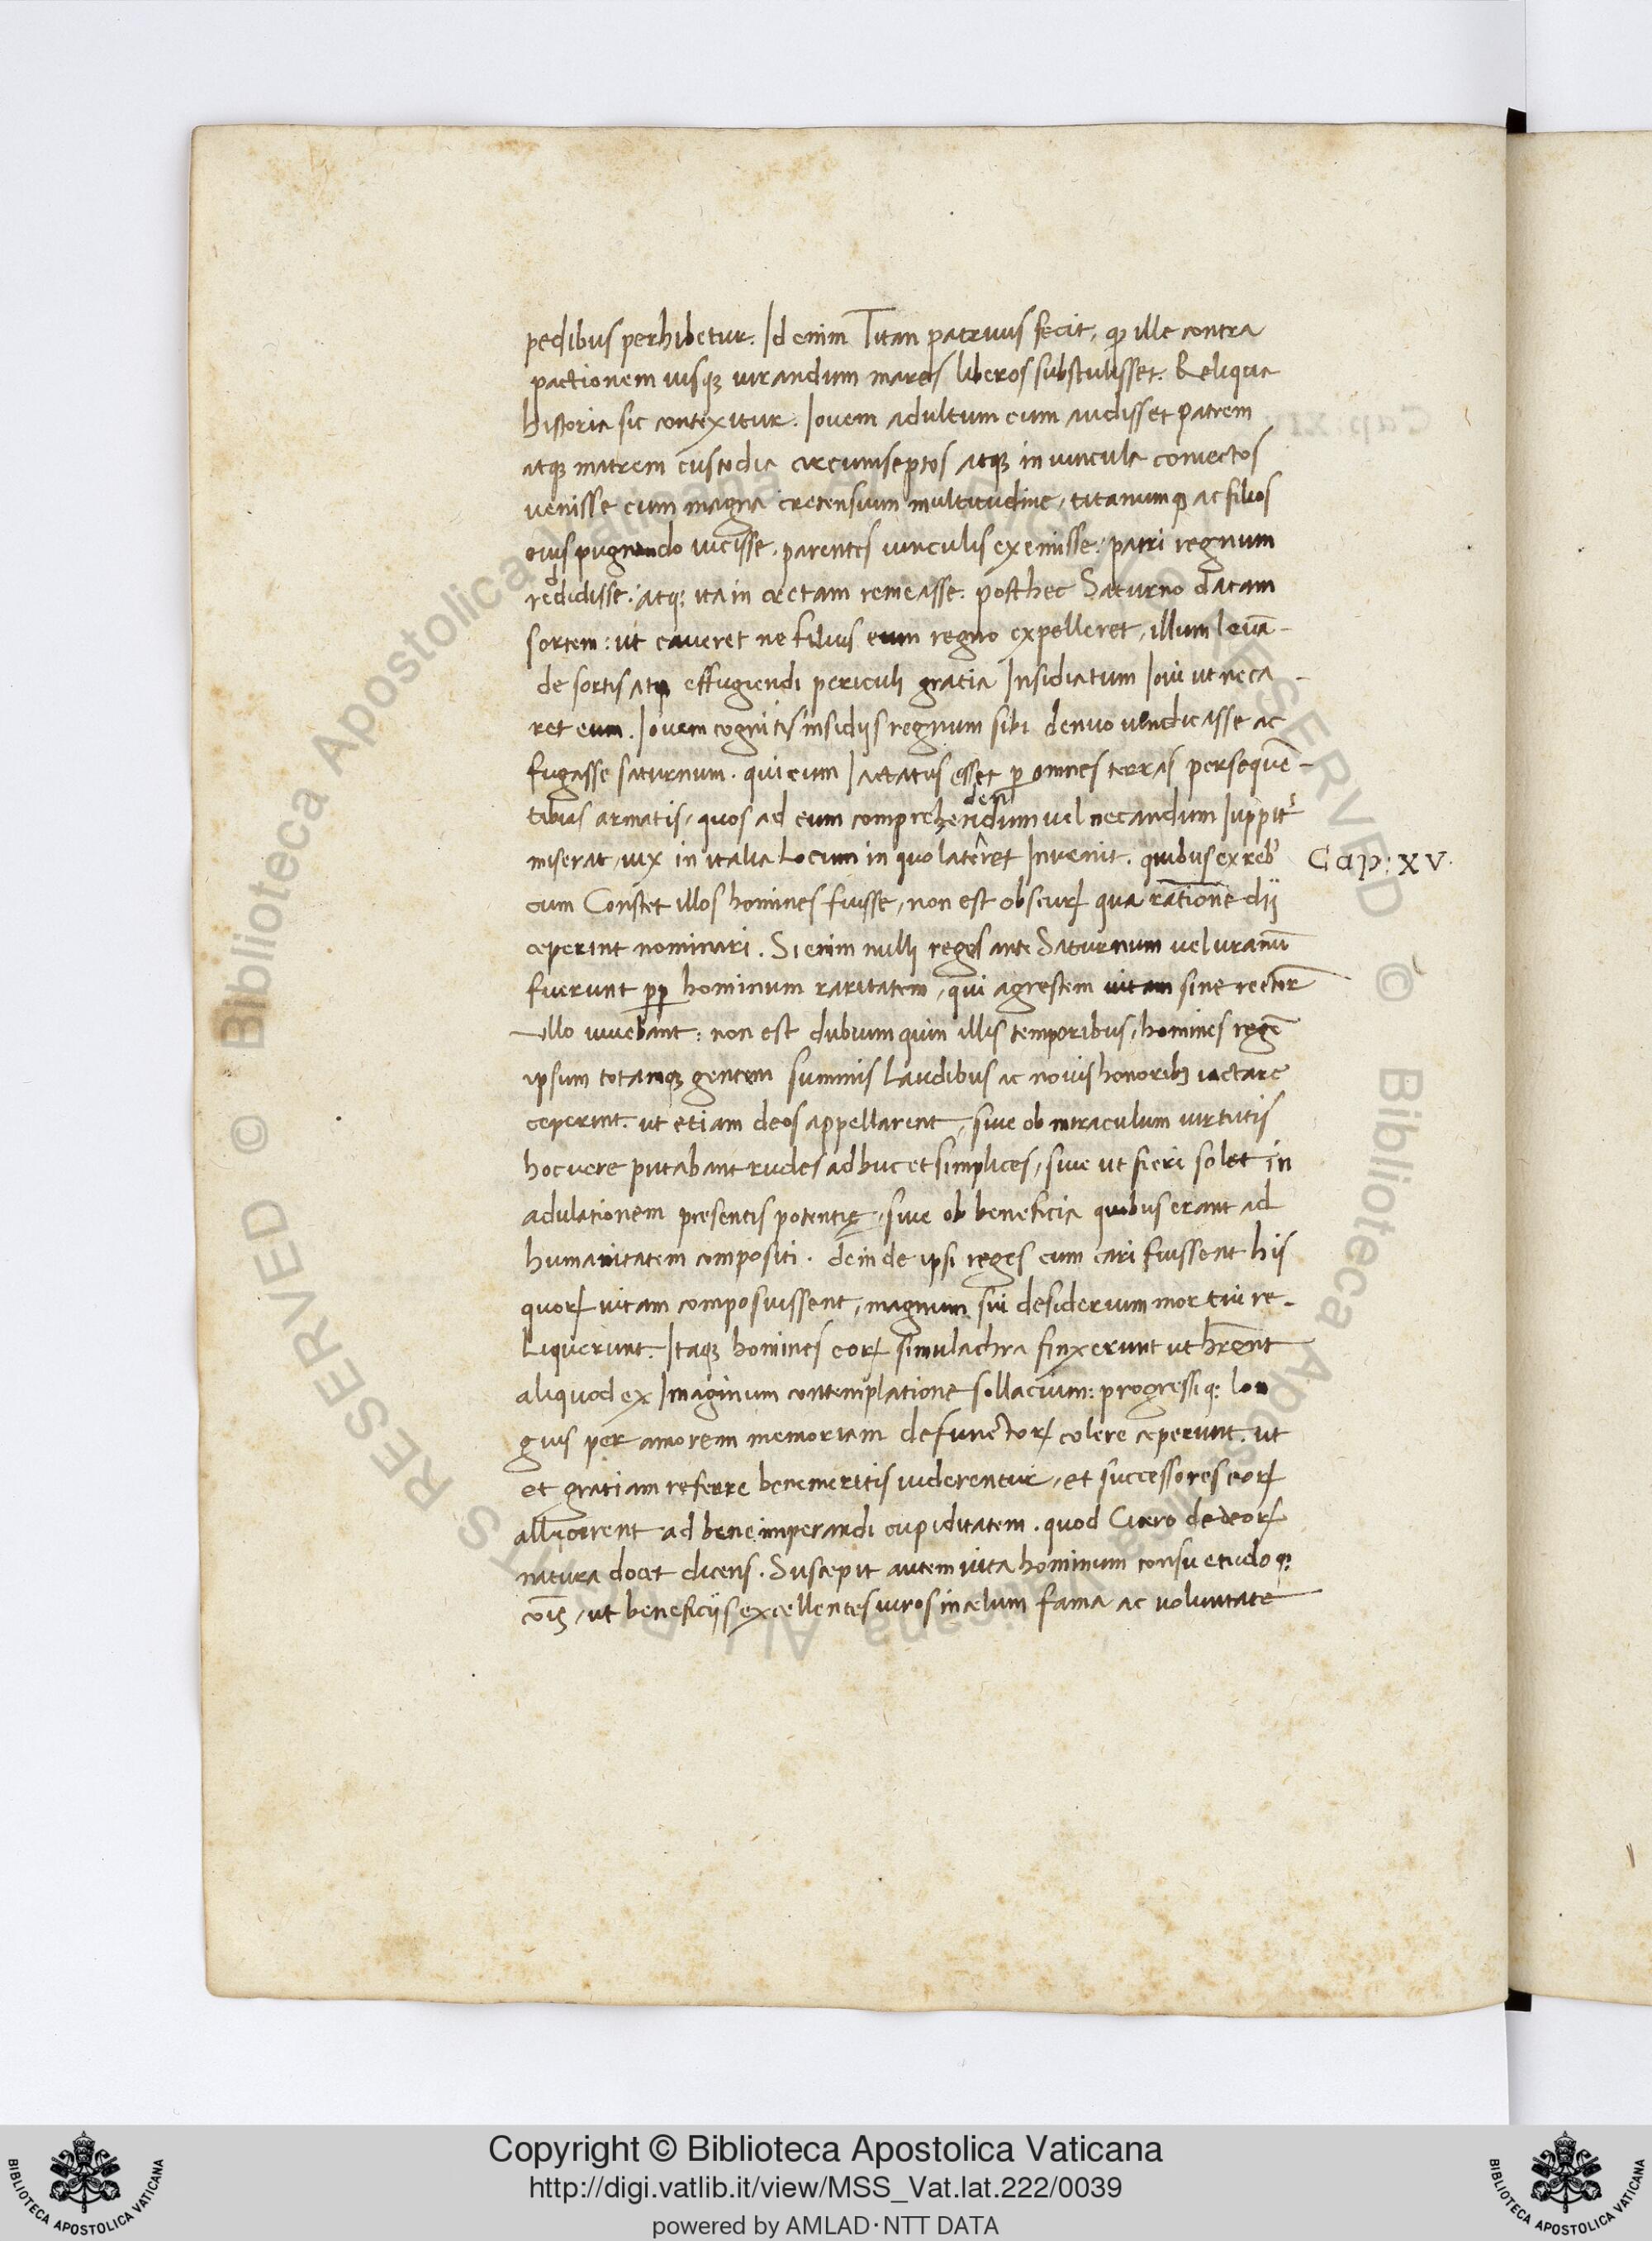 pedibus perhibetur. Id enim Titan patruus fecit, qđ ille contra
pactionem iusq; iurandum mares liberos substulisset. Reliqua
historia sic contexitur. Iovem adultum cum audisset patrem
atq; matrem custodia circumseptos atq; in vincula coniectos
venisse cum magna cretensium multitudine, titanumq; ac filios
eius pugnando vicisse, parentes vinculis exemisse: patri regnum
reddidisse: atq; ita in cretam remeasse. post hec Saturno datam
sortem: ut caveret ne filius eum regno expelleret, illum levā-
de sortis atq; effugiendi periculi gratia Insidiatum Iovi ut neca-
ret eum. Iovem cognitis insidiis regnum sibi denuo vendicasse ac
fugasse saturnum. qui cum Iactatus esset p omnes terras persequē-
tibus armatis, quos ad eum comprehendendum vel necandum Iuppit̃
miserat, vix in italia Locum in quo lateret Invenit. quibus ex reb9
Cap: XV.
cum Constet illos homines fuisse, non est obscurꝝ qua ratione dij
ceperint nominari. Si enim nulli reges ante Saturnum vel uranū
fuerunt pp hominum raritatem, qui agrestem vitam sine rector̄
Ullo vivebant: non est dubium quin illis temporibus, homines regē
ipsum totamq; gentem summis Laudibus ac novis honorib; iactare
ceperint. ut etiam deos appellarent, sive ob miraculum virtutis
hoc vere putabant rudes adhuc et simplices, sive ut fieri solet in
adulationem presentis potentię, sive ob beneficia quibus erant ad
humanitatem compositi. deinde ipsi reges cum cari fuissent his
quorꝝ vitam composuissent, magnum sui desiderium mortui re-
Liquerunt. Itaq; homines eorꝝ simulachra finxerunt ut hrent
aliquod ex Imaginum contemplatione sollacium: progressiq; lon
gius per amorem memoriam defunctorꝝ colere ceperunt. ut
et gratiam referre benemeritis viderentur, et successores eorꝝ
allicerent ad bene imperandi cupiditatem. quod Cicero de deorꝝ
natura docet dicens. Suscepit autem vita hominum consuetudoq;
cōis, ut beneficiis excellentes viros in celum fama ac voluntate
Copyright © Biblioteca Apostolica Vaticana
http://digi.vatlib.it/view/MSS_Vat.lat.222/0039
powered by AMLAD·NTT DATA